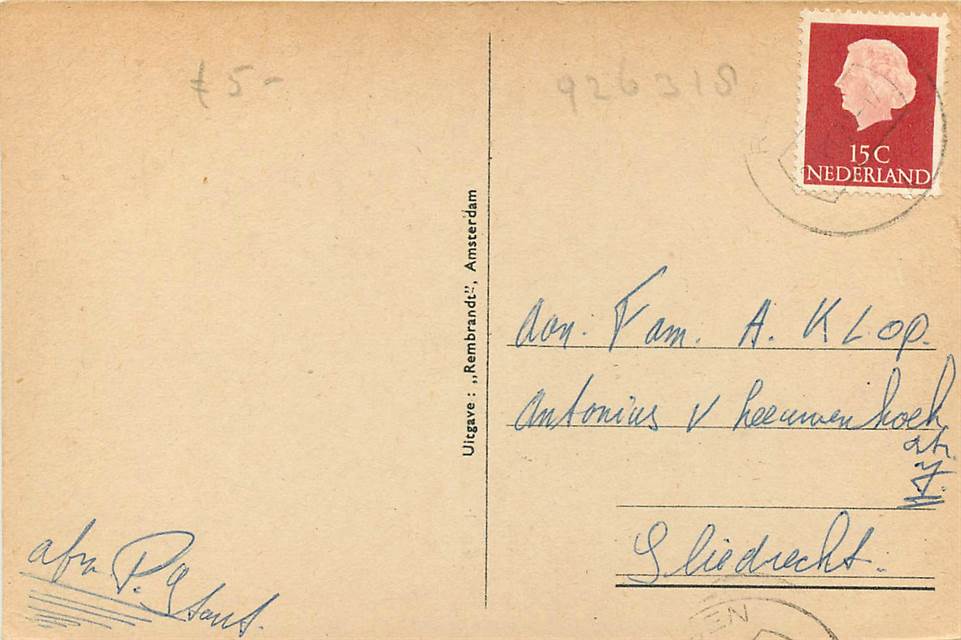 f 5-
926318
15 C
NEDERLAND
Uitgave : „Rembrandt”, Amsterdam
Aan. Fam. A. KLOP.
Antonius v Leeuwenhoek
str.
7.
Sliedrecht.
afz. P.
EN